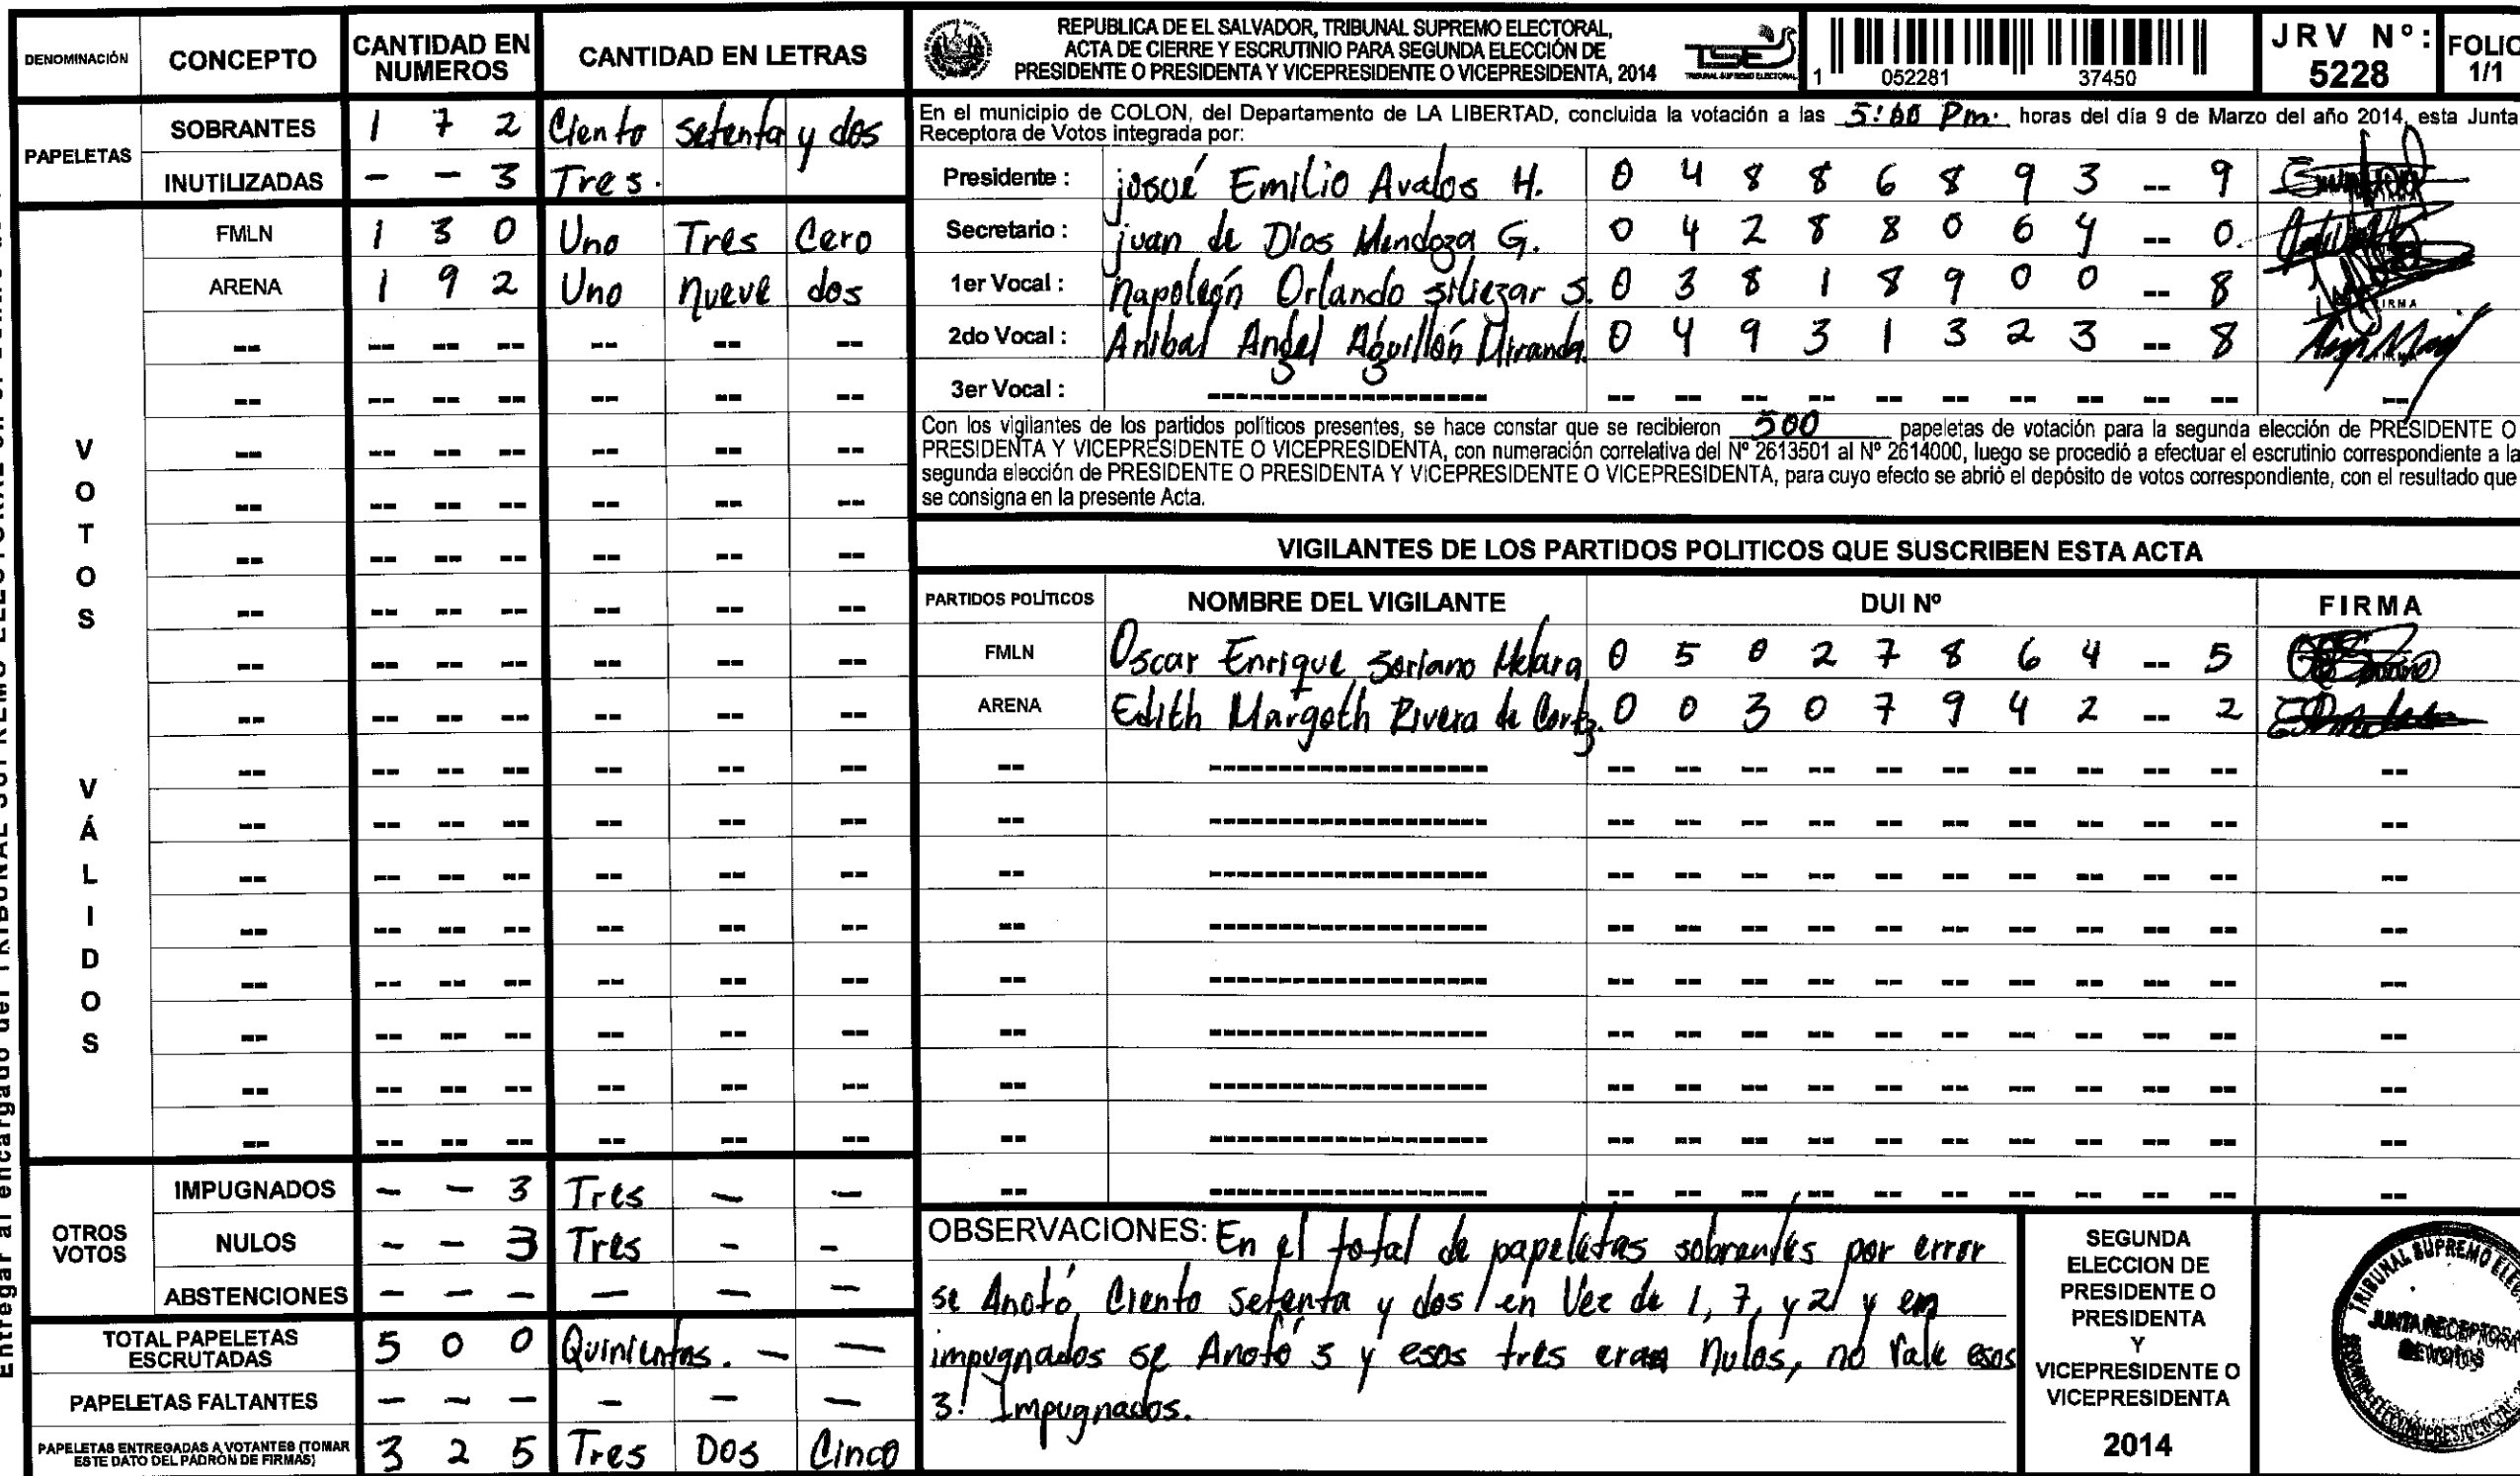 DENOMINACIÓN CONCEPTO CANTIDAD EN NUMEROS CANTIDAD EN LETRAS
PAPELETAS
SOBRANTES 1 7 2 Ciento setenta y dos
INUTILIZADAS - - 3 Tres.
VOTOS VÁLIDOS
FMLN 1 3 0 Uno Tres Cero
ARENA 1 9 2 Uno nueve dos
OTROS VOTOS
IMPUGNADOS - - 3 Tres - -
NULOS - - 3 Tres - -
ABSTENCIONES - - - - - -
TOTAL PAPELETAS ESCRUTADAS 5 0 0 Quinientas. - -
PAPELETAS FALTANTES - - - - - -
PAPELETAS ENTREGADAS A VOTANTES (TOMAR ESTE DATO DEL PADRÓN DE FIRMAS) 3 2 5 Tres Dos Cinco
REPUBLICA DE EL SALVADOR, TRIBUNAL SUPREMO ELECTORAL,
ACTA DE CIERRE Y ESCRUTINIO PARA SEGUNDA ELECCIÓN DE
PRESIDENTE O PRESIDENTA Y VICEPRESIDENTE O VICEPRESIDENTA, 2014
TSE
TRIBUNAL SUPREMO ELECTORAL
1 052281 37450
JRV Nº: 5228
FOLIO 1/1
En el municipio de COLON, del Departamento de LA LIBERTAD, concluida la votación a las 5:00 Pm. horas del día 9 de Marzo del año 2014, esta Junta
Receptora de Votos integrada por:
Presidente : josué Emilio Avalos H. 0 4 8 8 6 8 9 3 -- 9
Secretario : juan de Dios Mendoza G. 0 4 2 8 8 0 6 4 -- 0.
1er Vocal : Napoleón Orlando siliezar S. 0 3 8 1 8 9 0 0 -- 8
2do Vocal : Anibal Angel Aguillón Miranda. 0 4 9 3 1 3 2 3 -- 8
3er Vocal :
Con los vigilantes de los partidos políticos presentes, se hace constar que se recibieron 500 papeletas de votación para la segunda elección de PRESIDENTE O
PRESIDENTA Y VICEPRESIDENTE O VICEPRESIDENTA, con numeración correlativa del Nº 2613501 al Nº 2614000, luego se procedió a efectuar el escrutinio correspondiente a la
segunda elección de PRESIDENTE O PRESIDENTA Y VICEPRESIDENTE O VICEPRESIDENTA, para cuyo efecto se abrió el depósito de votos correspondiente, con el resultado que
se consigna en la presente Acta.
VIGILANTES DE LOS PARTIDOS POLITICOS QUE SUSCRIBEN ESTA ACTA
PARTIDOS POLÍTICOS NOMBRE DEL VIGILANTE DUI Nº FIRMA
FMLN Oscar Enrique Soriano Melara 0 5 0 2 7 8 6 4 -- 5
ARENA Edith Margoth Rivera de Cortz. 0 0 3 0 7 9 4 2 -- 2
OBSERVACIONES: En el total de papeletas sobrantes por error
se Anotó Ciento setenta y dos / en Vez de 1, 7, y 2/ y em
impugnados se Anotó 3 y esos tres eran Nulos, no Vale esos
3! Impugnados.
SEGUNDA
ELECCION DE
PRESIDENTE O
PRESIDENTA
Y
VICEPRESIDENTE O
VICEPRESIDENTA
2014
TRIBUNAL SUPREMO
JUNTA RECEPTORA
DE VOTOS
Entregar al encargado del TRIBUNAL SUPREMO ELECTORAL